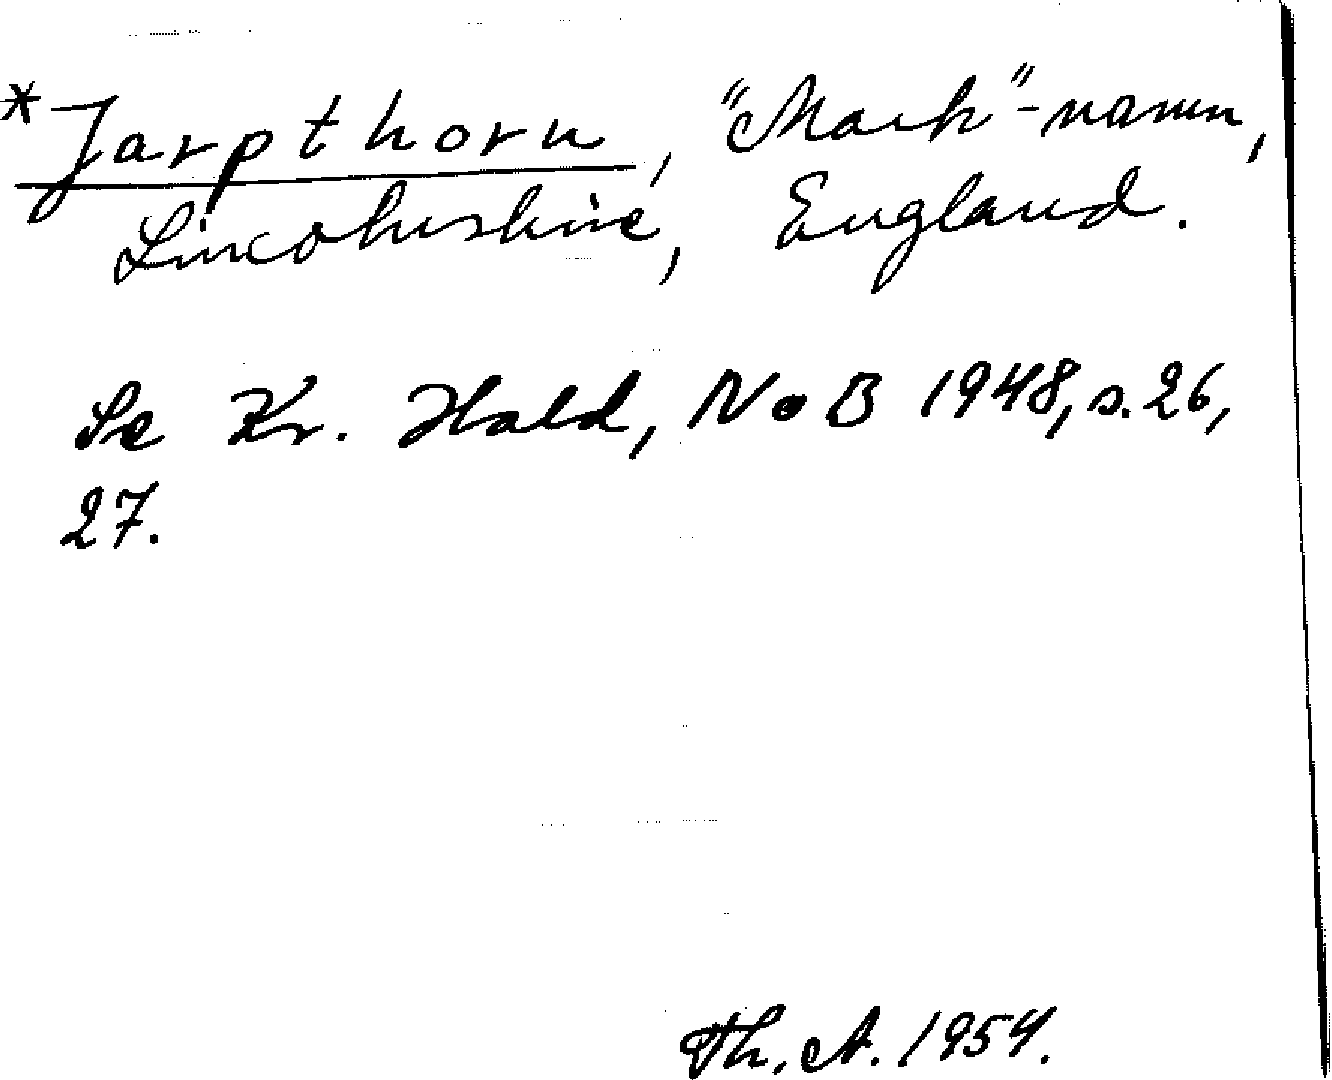 *Jarpthorn, "Mark"-namn,
Lincolnshire, England.
Se Kr. Hald, NoB 1948, s. 26,
27.
Th. A. 1954.